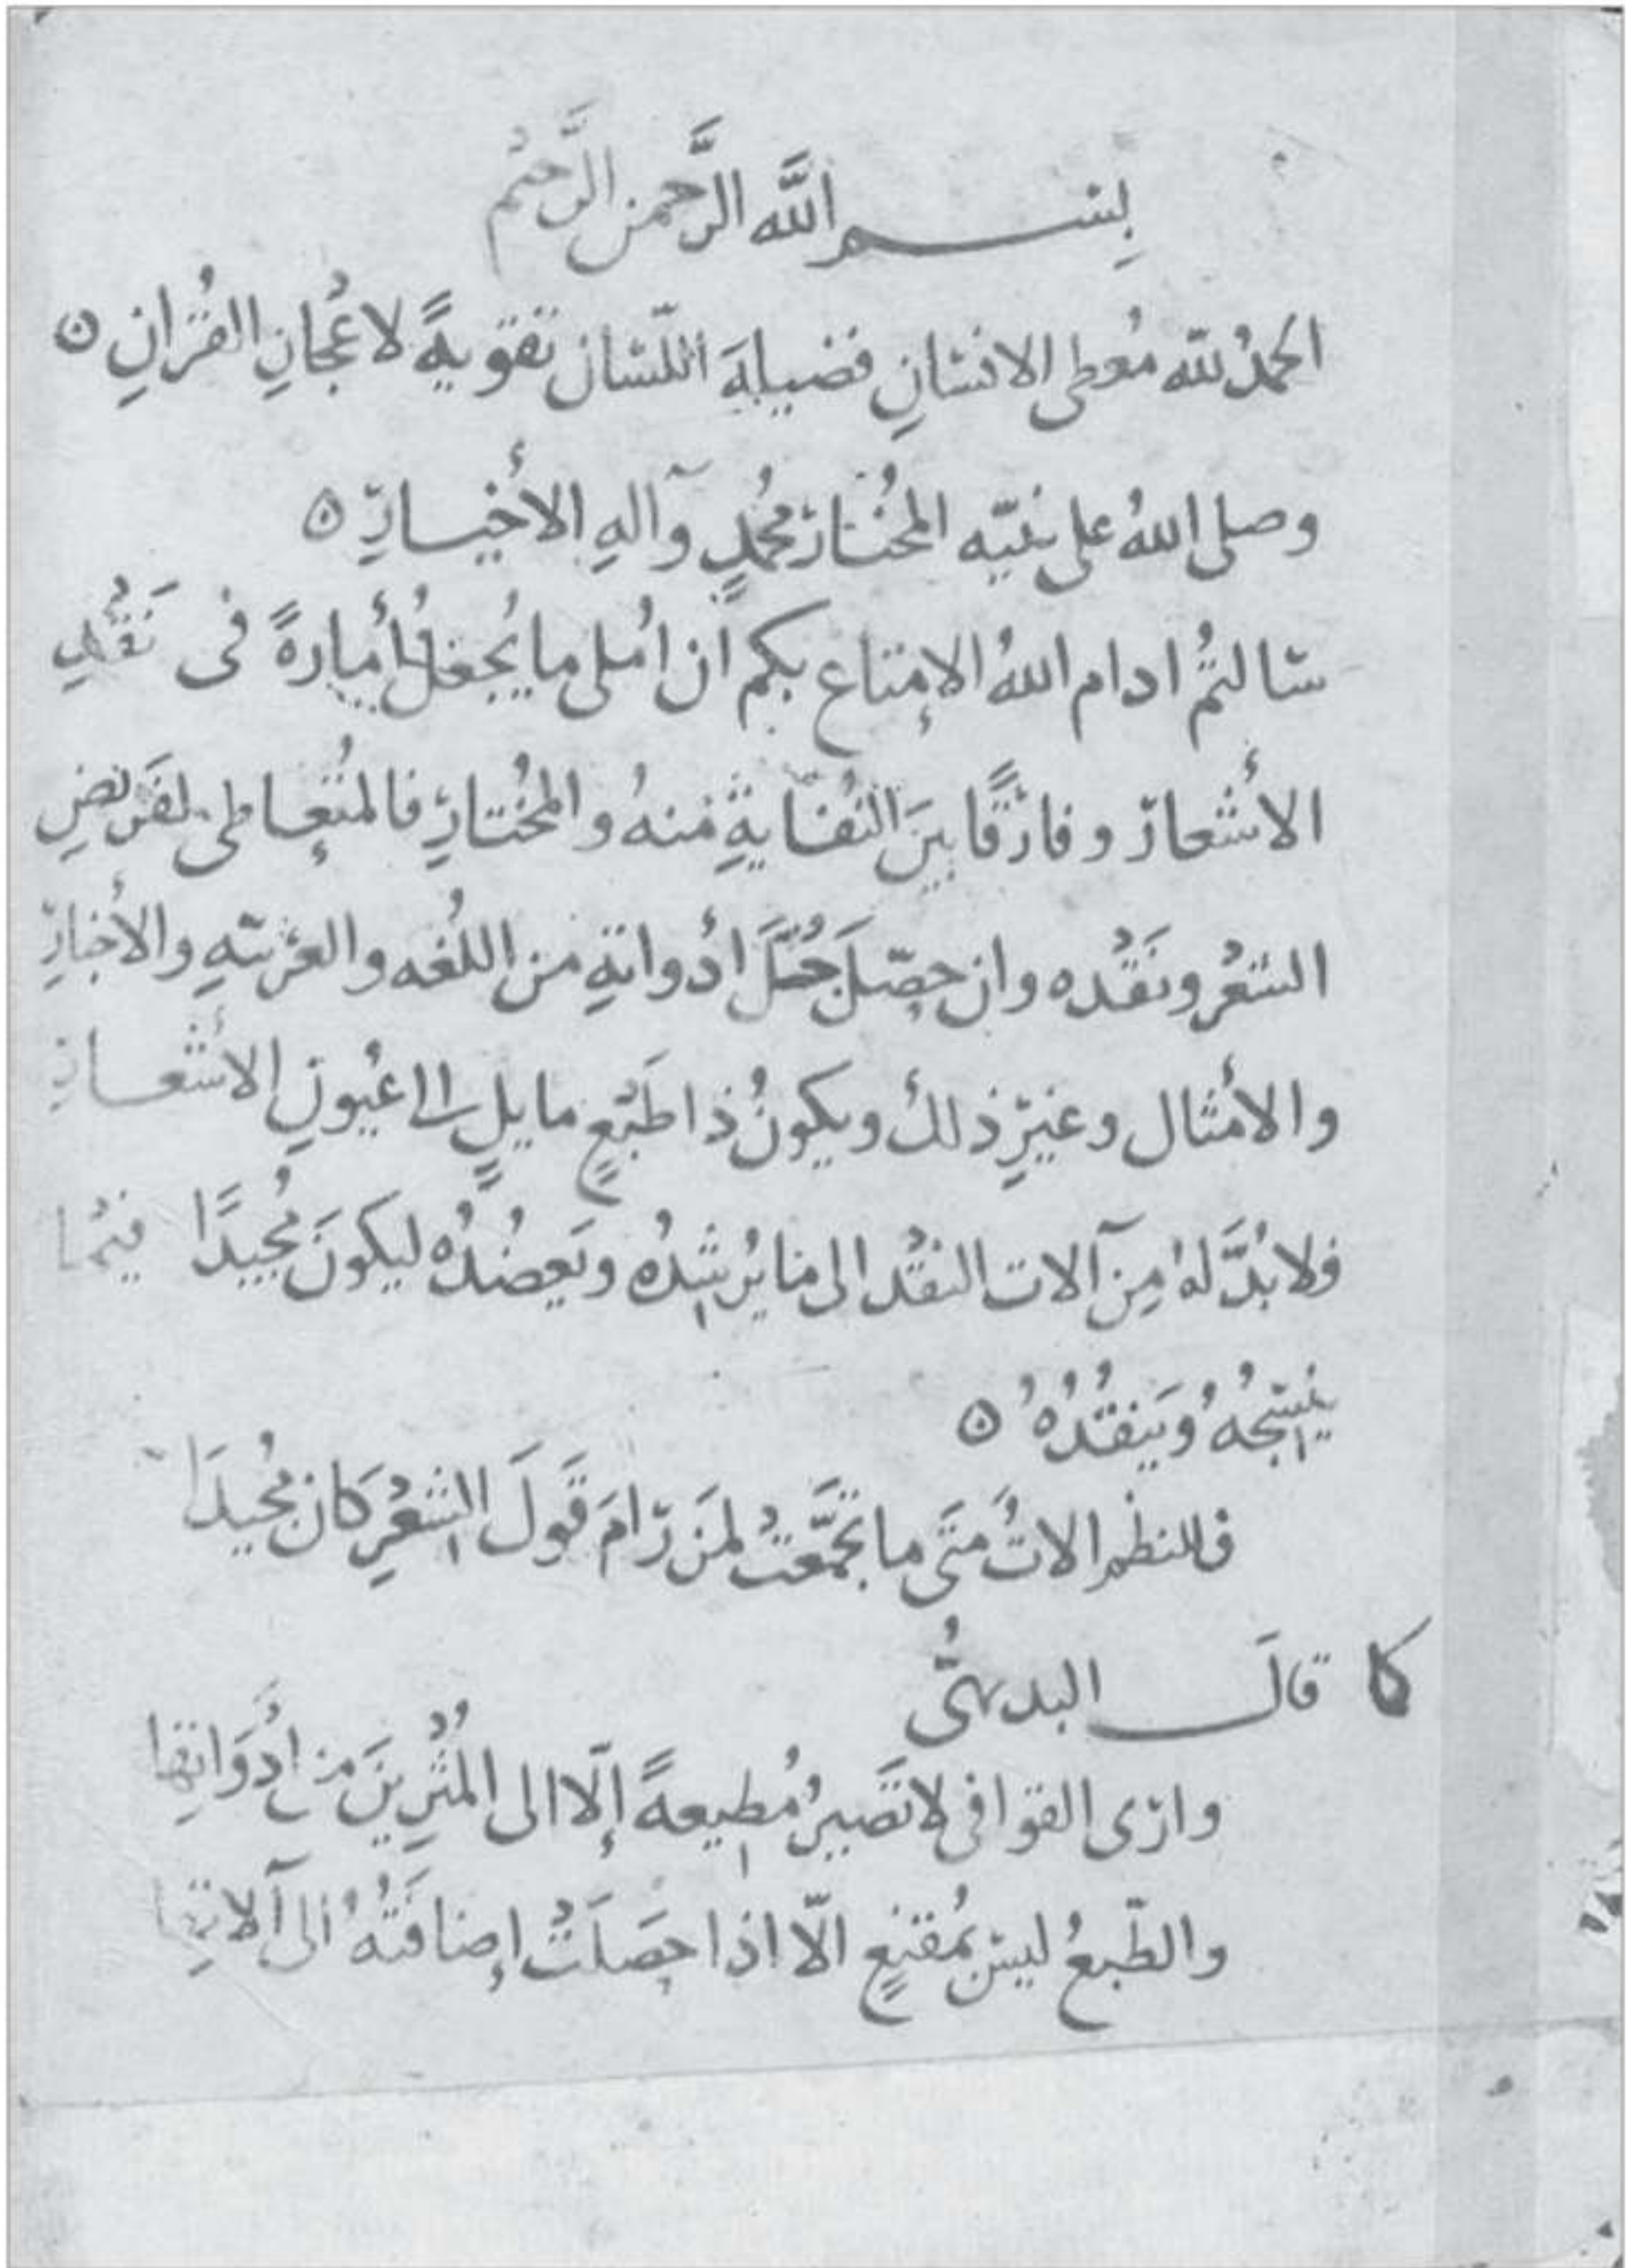 بِسْمِ اللَّه الرَّحمن الرَّحيْم
الحمدُ للّه مُعطى الانسَانِ فضيلةَ اللّسَان تقويةً لاعْجازِ القُرانِ ه
وصلى اللهُ على نبيّه المخْتار محُمّدٍ وآلهِ الأخْيارِ ه
سَالتمُ ادام اللهُ الإمتاع بكم ان امْلى ما يُجْعَلُ أمارةً فى نَقْدِ
الأشْعار وفارقًا بينَ النُفَايةِ منهُ والمخْتارِ فالمتَعاطى لقَرِيضِ
الشعْر ونَقْده وان حصّلَ جُلَّ أدْواتهِ من اللُغه والعربيّهِ والأخْبارِ
والأمْثال وغيْرِ ذلك ويكونُ ذا طَبْعٍ مايلٍ الى عُيونِ الأشْعارِ
فلا بُدَّ لهُ مِن آلات النقْد الى ما يُرْشِدُه ويَعضُدُه ليكونَ مُجيدًا فيْما
يَنْسِجُهُ ويَنقُدُهُ ه
فللنظم الاتٌ مَتَى ما تجَمَّعَتْ لمَن رَامَ قَولَ الشعْرِ كَان مُجيدَا
كما قالَ البديهىُّ
وارَى القوافى لا تَصيرُ مُطيعةً إلّا الى المُثْرِينَ من أدَوَاتِها
والطّبعُ ليسَ بمُقنِعٍ الّا اذا حصَلَتْ إضافَتُهُ الى آلاتِها